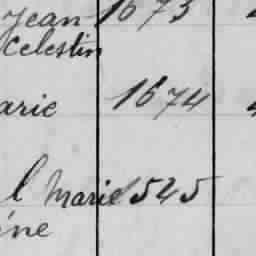 Jean 1673
Celestin
arie 1674
l Marie 1525
ine